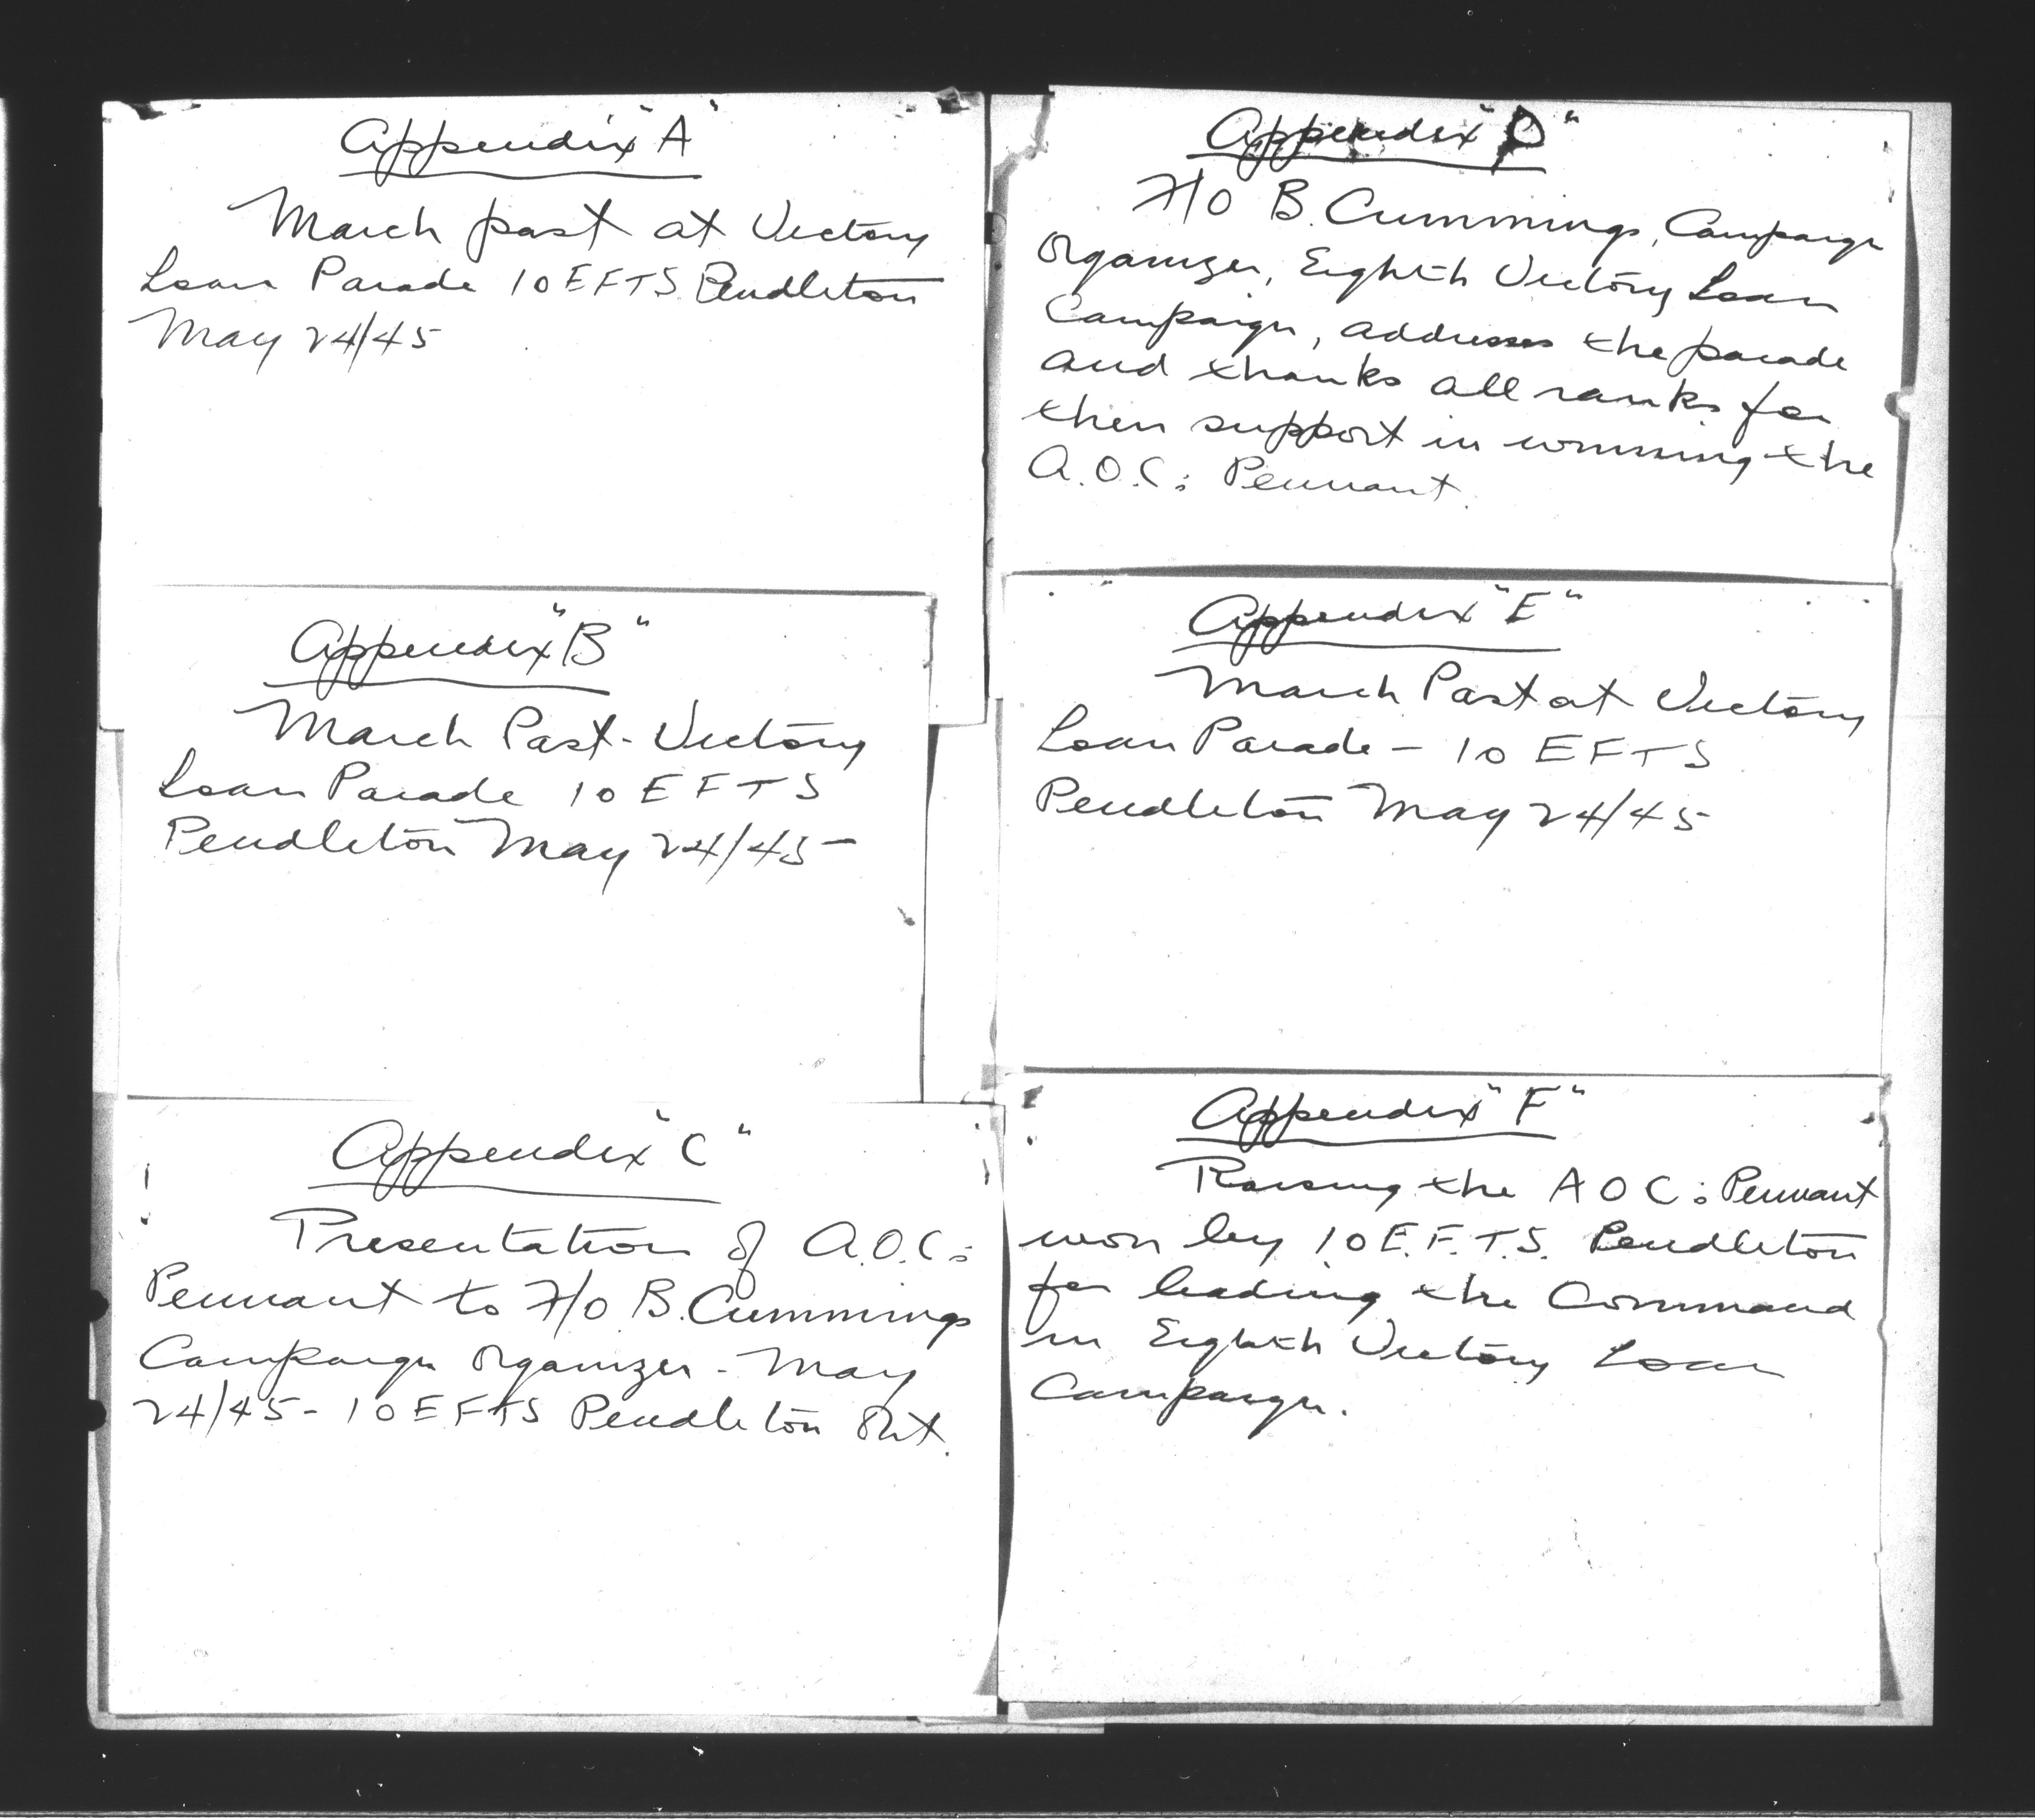 Appendix "A"
March past at Victory
Loan Parade 10 EFTS Pendleton
May 24/45
Appendix "B"
March Past - Victory
Loan Parade 10 EFTS
Pendleton May 24/45 -
Appendix "C"
Presentation of A.O.C:s
Pennant to F/O B. Cummings
Campaign Organizer - May
24/45 - 10 EFTS Pendleton Ont.
Appendix "D"
F/O B. Cummings, Campaign
Organizer, Eighth Victory Loan
Campaign, addresses the parade
and thanks all ranks for
their support in winning the
A.O.C:s Pennant.
Appendix "E"
March Past at Victory
Loan Parade - 10 EFTS
Pendleton May 24/45
Appendix "F"
Raising the AOC:s Pennant
won by 10 E.F.T.S. Pendleton
for leading the Command
in Eighth Victory Loan
Campaign.